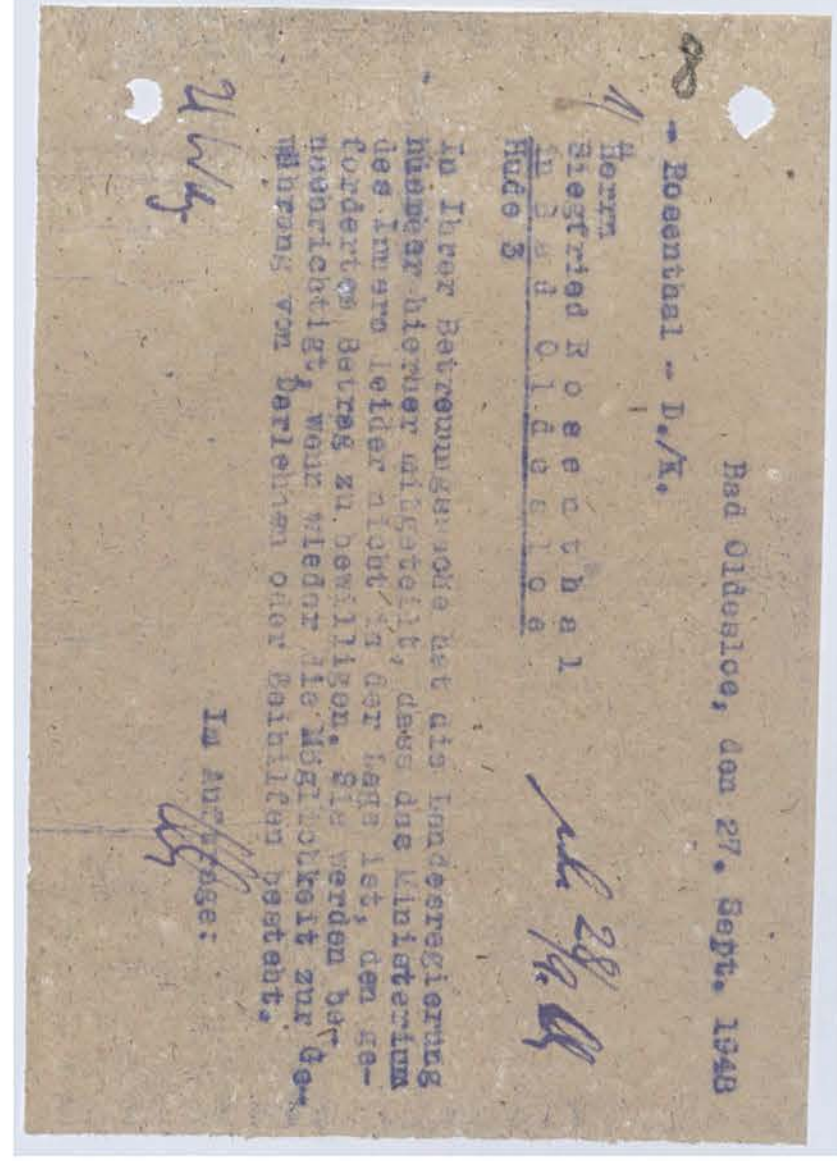 Bad Oldesloe, den 27. Sept. 1948
- Rosenthal - D./K.
1/ Herrn
Siegfried R o s e n t h a l
in B a d O l d e s l o e
Hude 3
28/9.
In Ihrer Betreuungssache hat die Landesregierung
hierher mitgeteilt, dass das Ministerium
des Innern leider nicht in der Lage ist, den ge-
forderten Betrag zu bewilligen. Sie werden be-
nachrichtigt, wenn wieder die Möglichkeit zur Ge-
währung von Darlehnen oder Beihilfen besteht.
Im Auftrage: